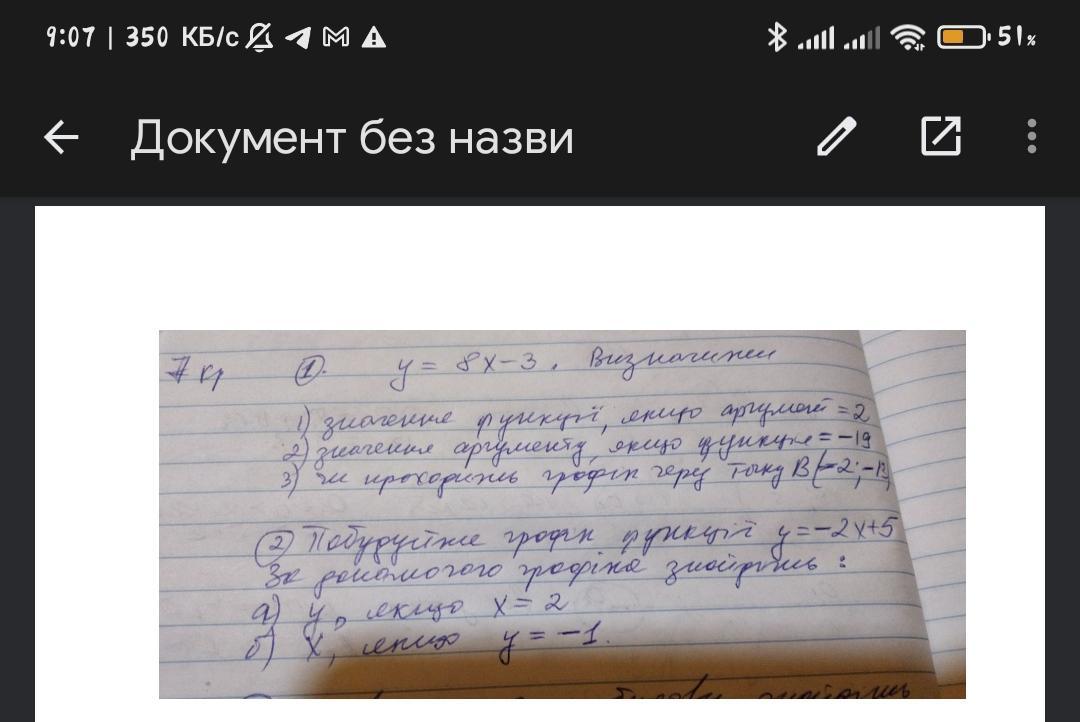 9:07 | 350 КБ/с
51%
Документ без назви
7 кр ①. y = 8x-3. Визначити
1) значення функції, якщо аргумент = 2
2) значення аргументу, якщо функція = -19
3) чи проходить графік через точку B(-2;-13
② Побудуйте графік функції y=-2x+5
За допомогою графіка знайдіть:
а) y, якщо x = 2
б) x, якщо y = -1.
знайдіть